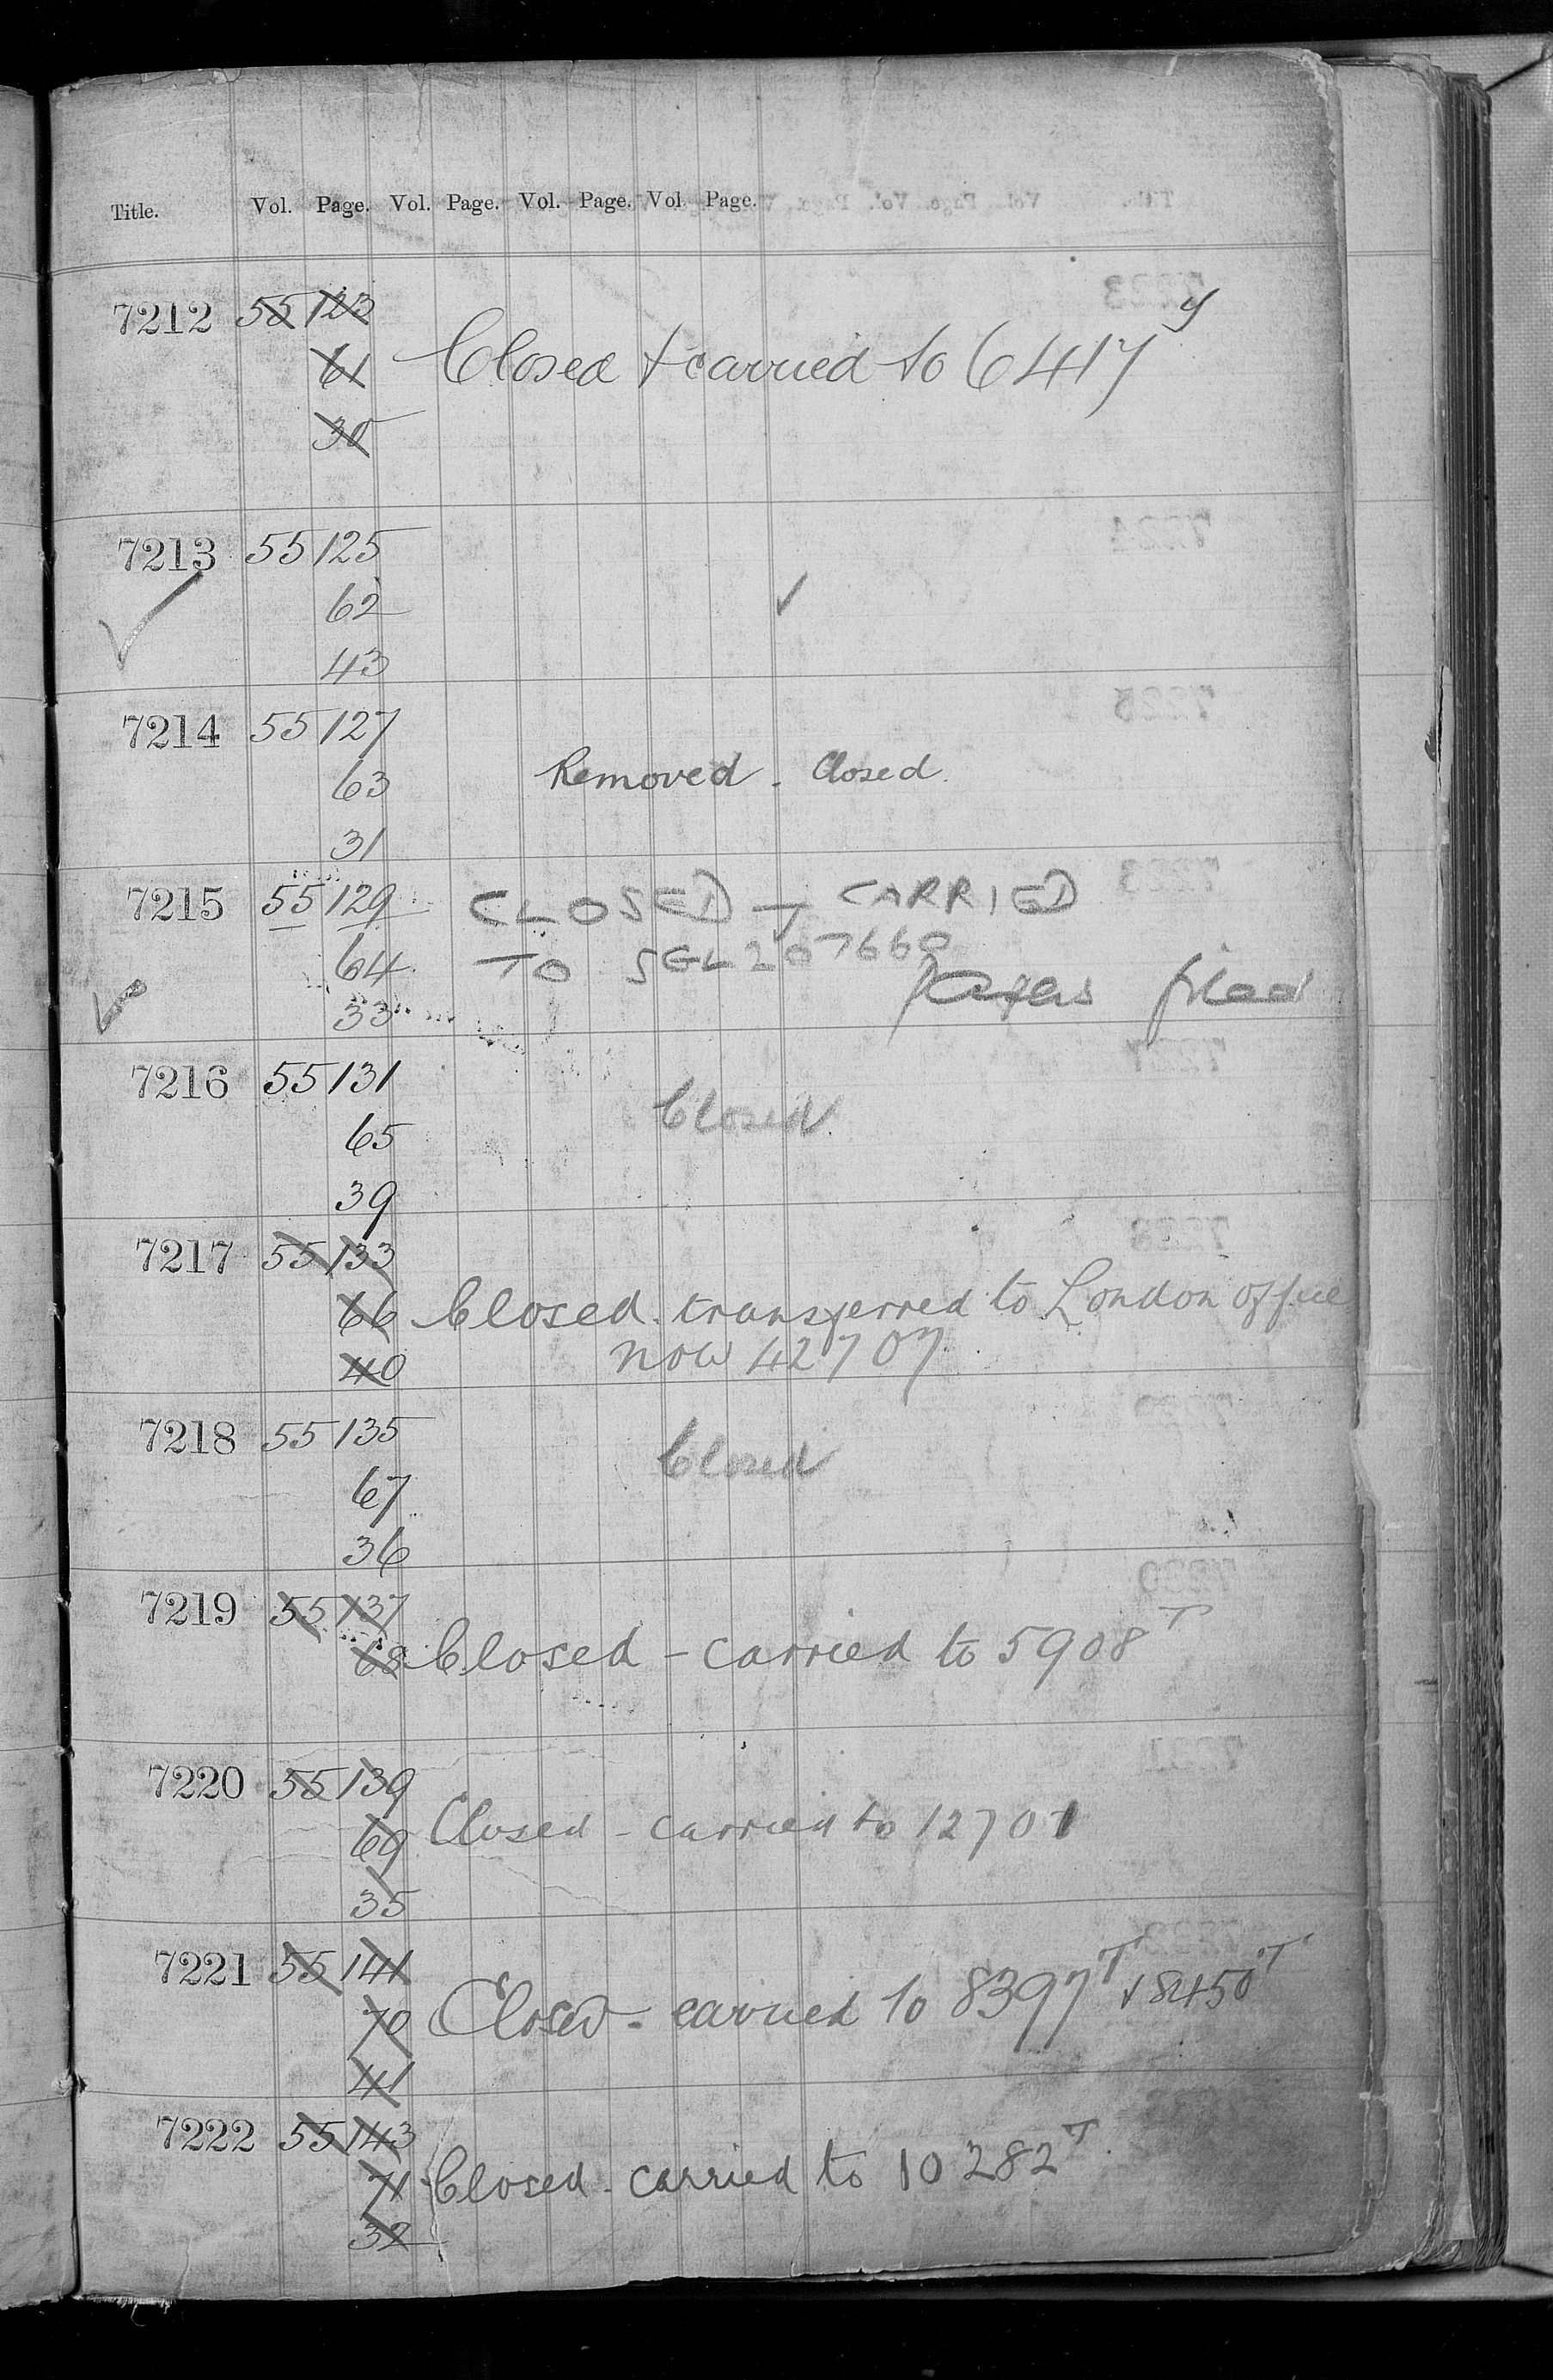 Title. Vol. Page. Vol. Page. Vol. Page. Vol. Page.
7212 55 123
61 Closed & carried to 6417 y
30
7213 55 125
62 ✓
✓ 43
7214 55 127
63 Removed - Closed.
31
7215 55 129 CLOSED + CARRIED
64 TO SGL207660
✓ 33 Papers filed
7216 55 131
65 Closed.
39
7217 55 133
66 Closed. transferred to London office
40 now 42707.
7218 55 135
67 Closed
36
7219 55 137
68 Closed - carried to 5908 T
7220 55 139
69 Closed - carried to 12701
35
7221 55 141
70 Closed - carried to 8397 T & 8450 T
41
7222 55 143
71 Closed - carried to 10282 T
32